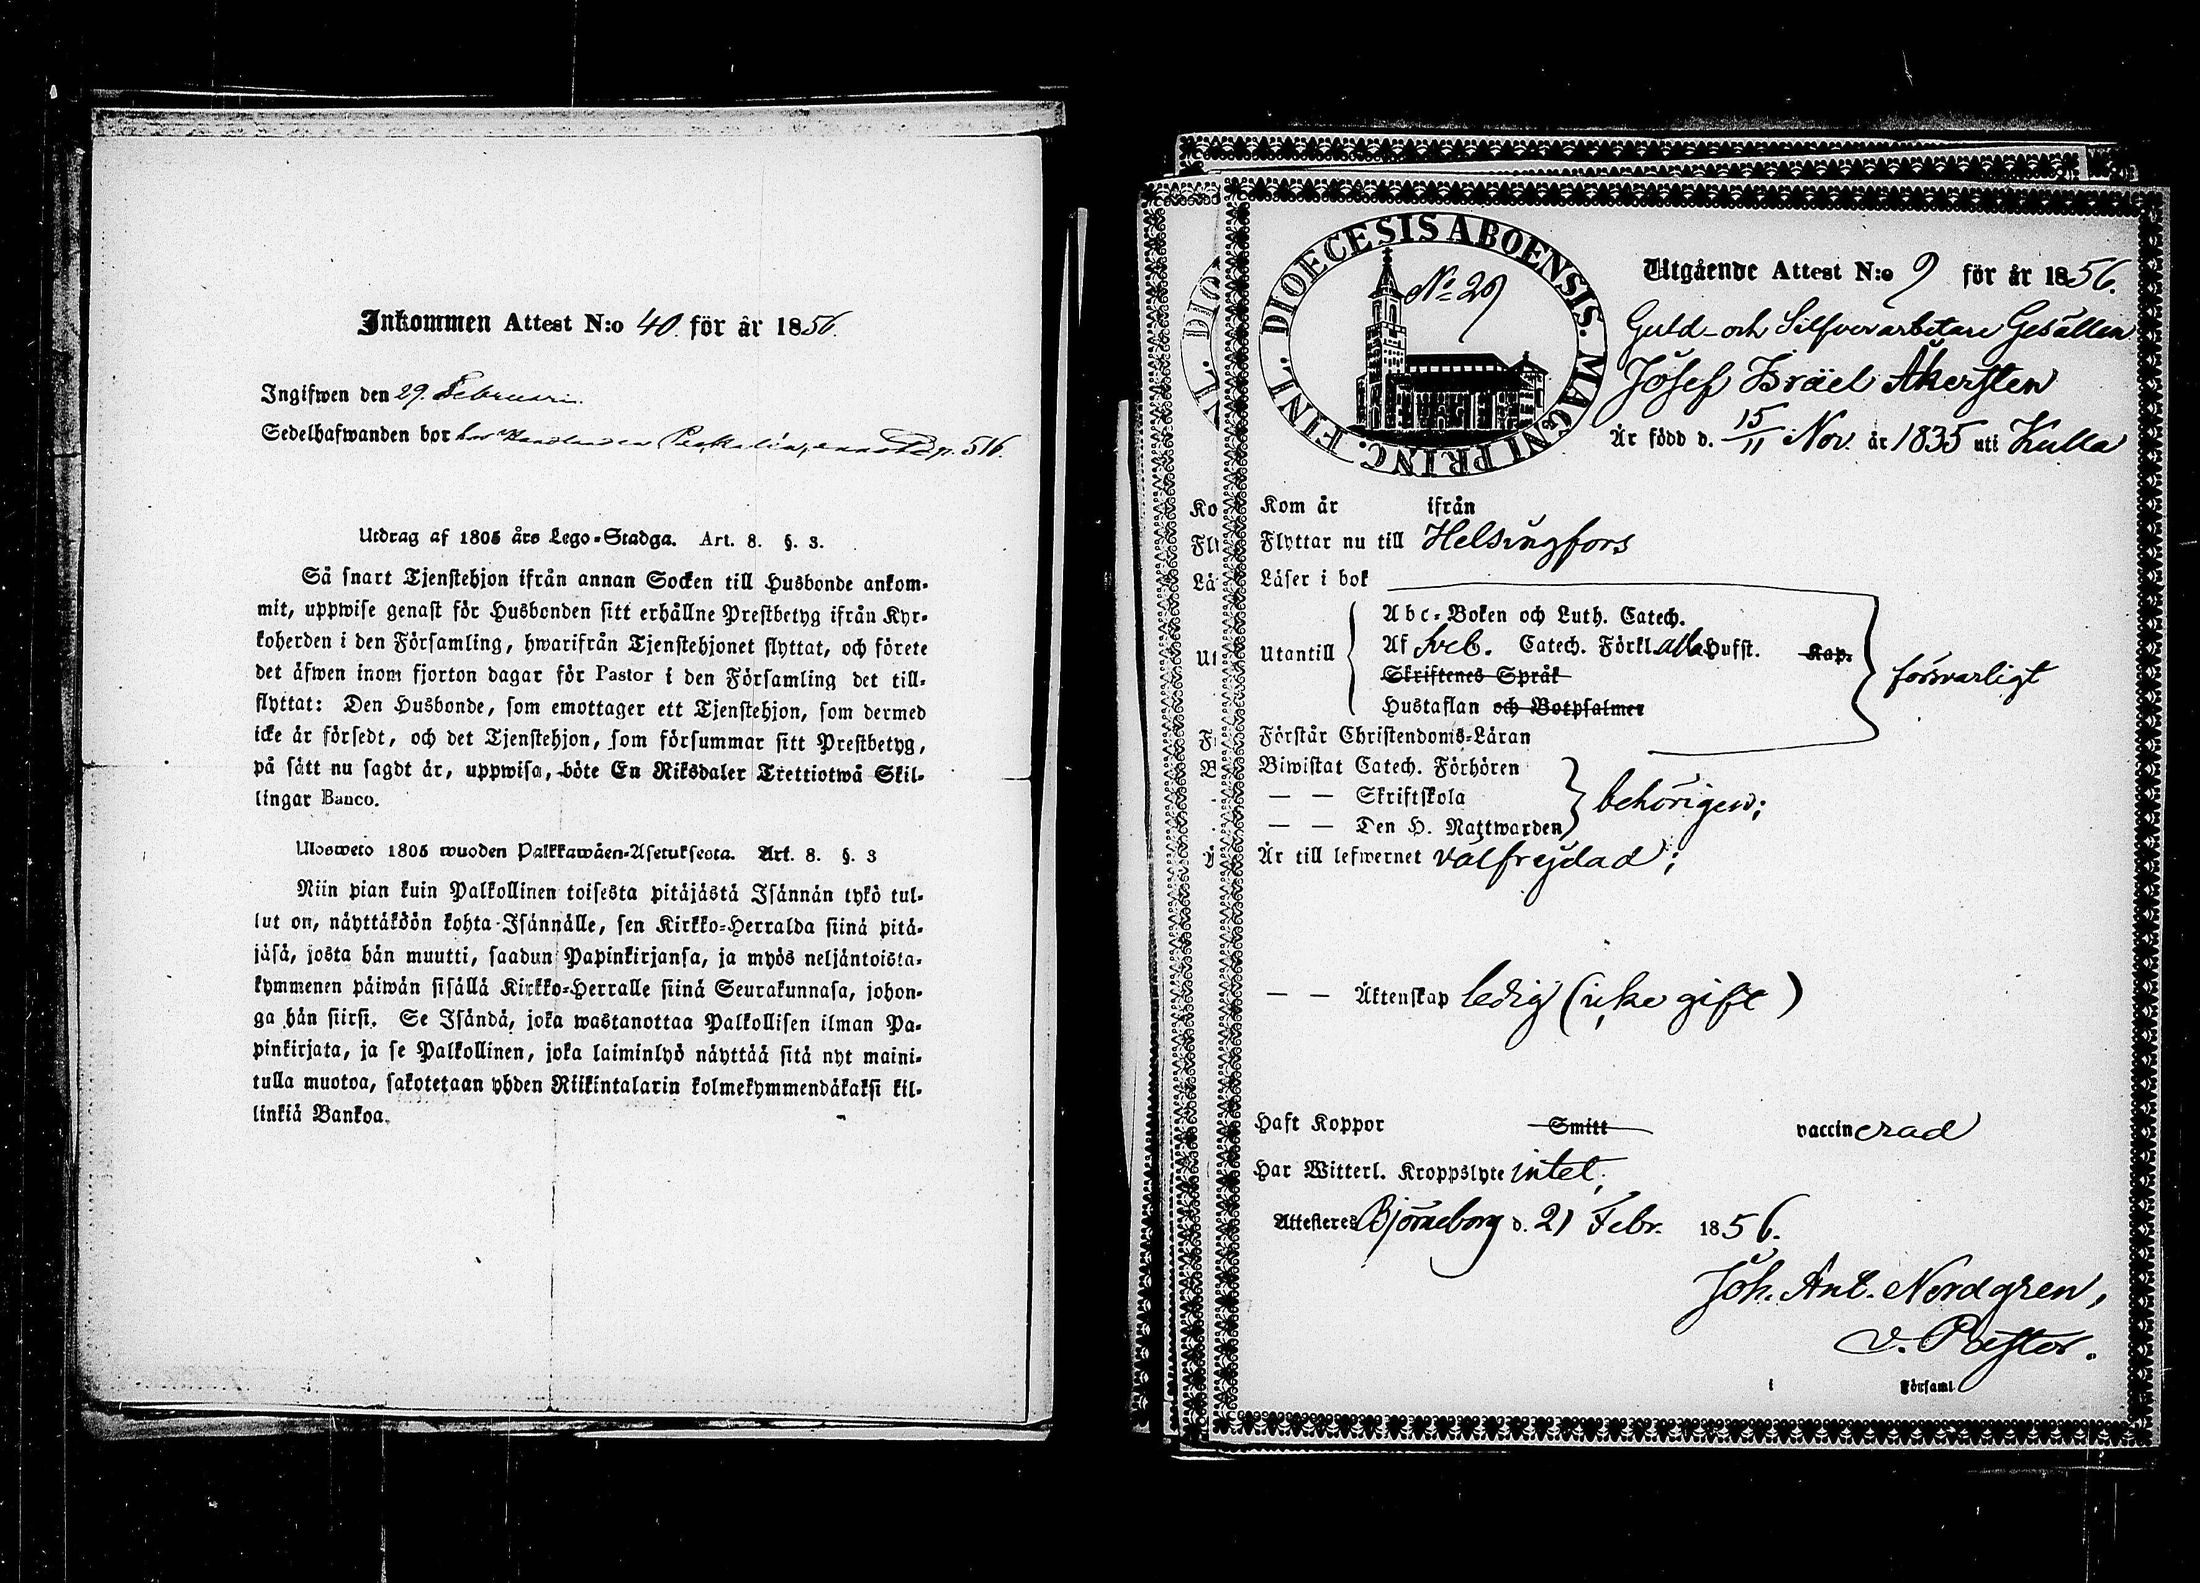 Inkommen Attest N:o 40. för år 1856.
Ingifwen den 29. Februari.
Sedelhafwanden bor hos Handlanden p. 516.
Utdrag af 1805 års Lego-Stadga. Art. 8. §. 3.
Så snart Tjenstehjon ifrån annan Socken till Husbonde ankom-
mit, uppwise genast för Husbonden sitt erhållne Prestbetyg ifrån Kyr-
koherden i den Församling, hwarifrån Tjenstehjonet flyttat, och förete
det äfwen inom fjorton dagar för Pastor i den Församling det till-
flyttat: Den Husbonde, som emottager ett Tjenstehjon, som dermed
icke är försedt, och det Tjenstehjon, som försummar sitt Prestbetyg,
på sätt nu sagdt är, uppwisa, böte En Riksdaler Trettiotwå Skil-
lingar Banco.
Ulosweto 1805 wuoden Palkkawäen-Asetuksesta. Art. 8. §. 3
Niin pian kuin Palkollinen toisesta pitäjästä Isännän tykö tul-
lut on, näyttäköön kohta Isännälle, sen Kirkko-Herralda siinä pitä-
jäsä, josta hän muutti, saadun Papinkirjansa, ja myös neljäntoista-
kymmenen päiwän sisällä Kirkko-Herralle siinä Seurakunnasa, johon-
ga hän siirsi. Se Isändä, joka wastanottaa Palkollisen ilman Pa-
pinkirjata, ja se Palkollinen, joka laiminlyö näyttää sitä nyt maini-
tulla muotoa, sakotetaan yhden Riikintalarin kolmekymmendäkaksi kil-
linkiä Bankoa.
DIOECESIS ABOENSIS. MAGNI PRINC. FINL.
N:o 29
Utgående Attest N:o 9 för år 1856.
Guld- och Silfverarbetare Gesällen
Josef Israël Åkersten
Är född d. 15/11 Nov. år 1835 uti Kulla
Kom år ifrån
Flyttar nu till Helsingfors
Läser i bok
Abc-Boken och Luth. Catech.
Utantill Af Sveb. Catech. Förkl. alla Hufst. Kap.
Skriftenes Språk
försvarligt
Hustaflan och Botpsalmer
Förstår Christendoms-Läran
Biwistat Catech. Förhören
— — Skriftskola
behörigen;
— — Den H. Nattwarden
Är till lefwernet välfrejdad;
— — Äktenskap ledig (icke gift)
Haft Koppor Smitt vaccinerad
Har Witterl. Kroppslyte intet;
Attesteres Björneborg d. 21 Febr. 1856.
Joh. Ant. Nordgren,
v. Pastor.
i Församl